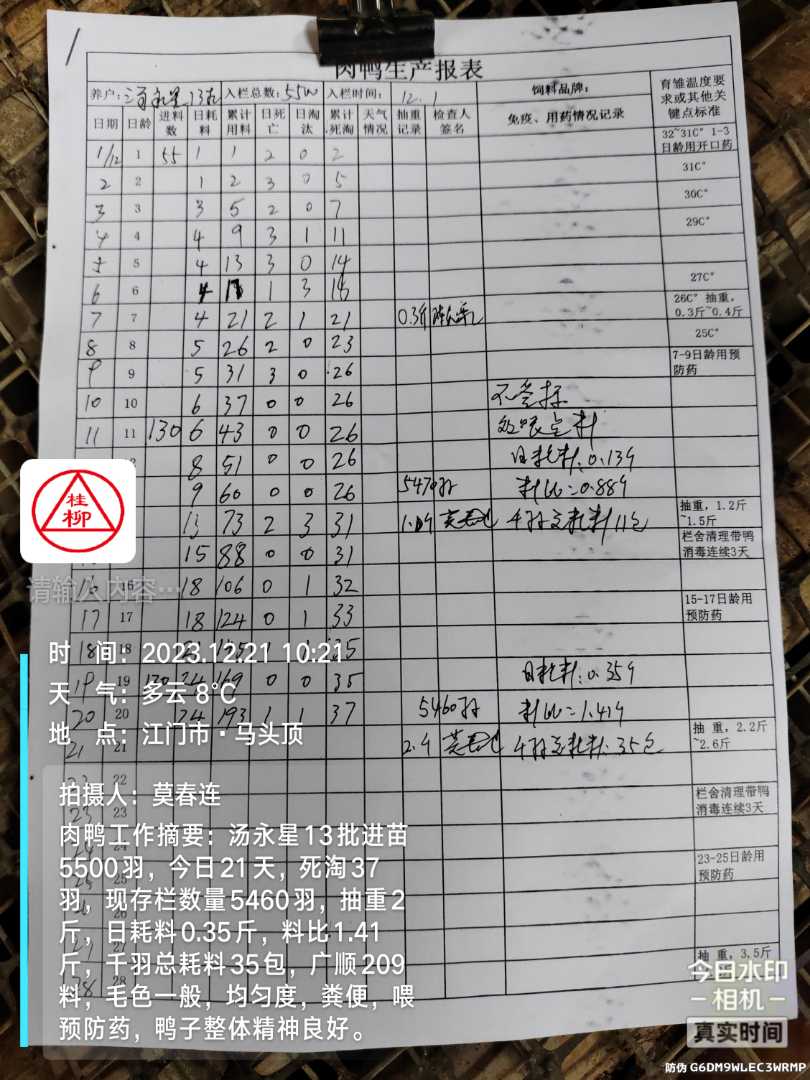 1
肉鸭生产报表
养户: 永星 13批 入栏总数: 5500 入栏时间: 12.1 饲料品牌: 育雏温度要求或其他关键点标准
日期 日龄 进料数 日耗料 累计用料 日死亡 日淘汰 累计死淘 天气情况 抽重记录 检查人签名 免疫、用药情况记录
1/12 1 55 1 1 2 0 2 32~31C° 1-3日龄用开口药
2 2 1 2 3 0 5 31C°
3 3 3 5 2 0 7 30C°
4 4 4 9 3 1 11 29C°
5 5 4 13 3 0 14
6 6 4 1 3 18 27C°
7 7 4 21 2 1 21 0.3斤 26C° 抽重,0.3斤~0.4斤
8 8 5 26 2 0 23 25C°
9 9 5 31 3 0 26 7-9日龄用预防药
10 10 6 37 0 0 26
11 11 130 6 43 0 0 26
8 51 0 0 26 日耗料:0.13斤
9 60 0 0 26 5470羽 料比=0.88斤
13 73 2 3 31 莫春连 千羽总耗料11包 抽重,1.2斤~1.5斤
15 88 0 0 31 栏舍清理带鸭消毒连续3天
16 16 18 106 0 1 32
17 17 18 124 0 1 33 15-17日龄用预防药
18 18 1 35
19 19 130 24 169 0 0 35 日耗料:0.35斤
20 20 24 193 1 1 37 5460羽 料比=1.41斤
21 21 2.斤 莫春连 千羽总耗料35包 抽重,2.2斤~2.6斤
22
23 23 栏舍清理带鸭消毒连续3天
24 24
25 25 23-25日龄用预防药
26 26
27 27
28 28 抽重,3.5斤
桂柳
请输入内容…
时间:2023.12.21 10:21
天气:多云 8℃
地点:江门市·马头顶
拍摄人:莫春连
肉鸭工作摘要:汤永星13批进苗
5500羽,今日21天,死淘37
羽,现存栏数量5460羽,抽重2
斤,日耗料0.35斤,料比1.41
斤,千羽总耗料35包,广顺209
料,毛色一般,均匀度,粪便,喂
预防药,鸭子整体精神良好。
今日水印
相机
真实时间
防伪 G6DM9WLEC3WRMP